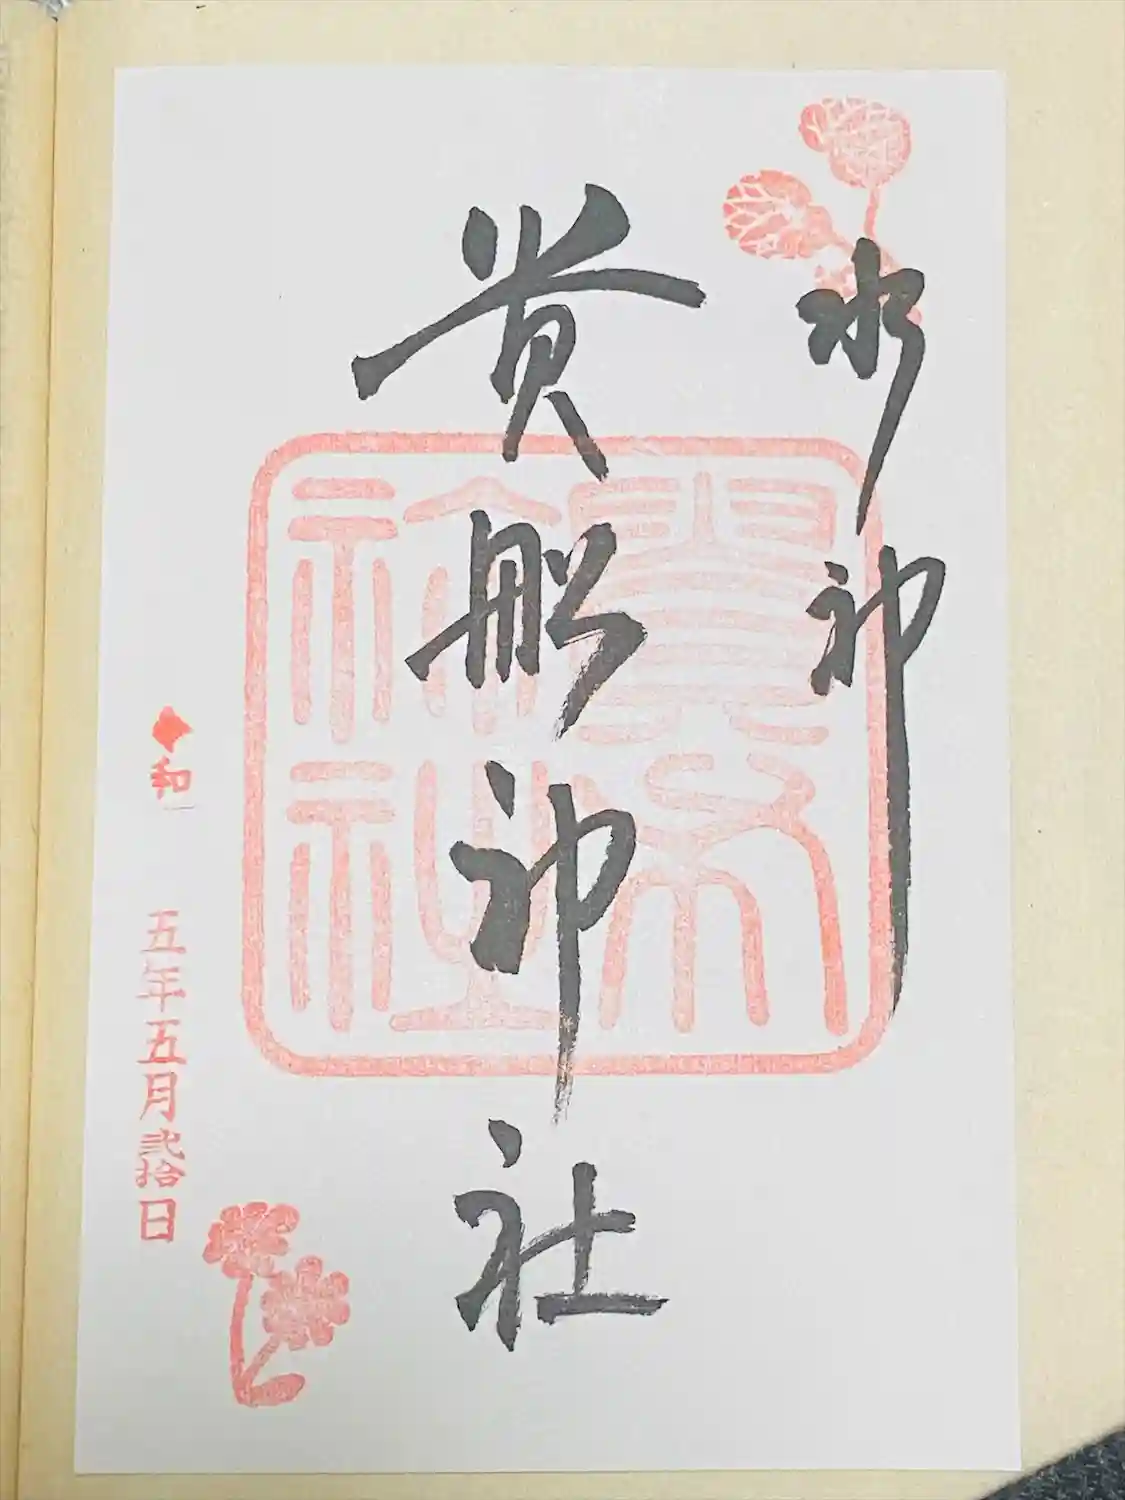 水神
貴船神社
貴布
祢社
令和五年五月弐拾日